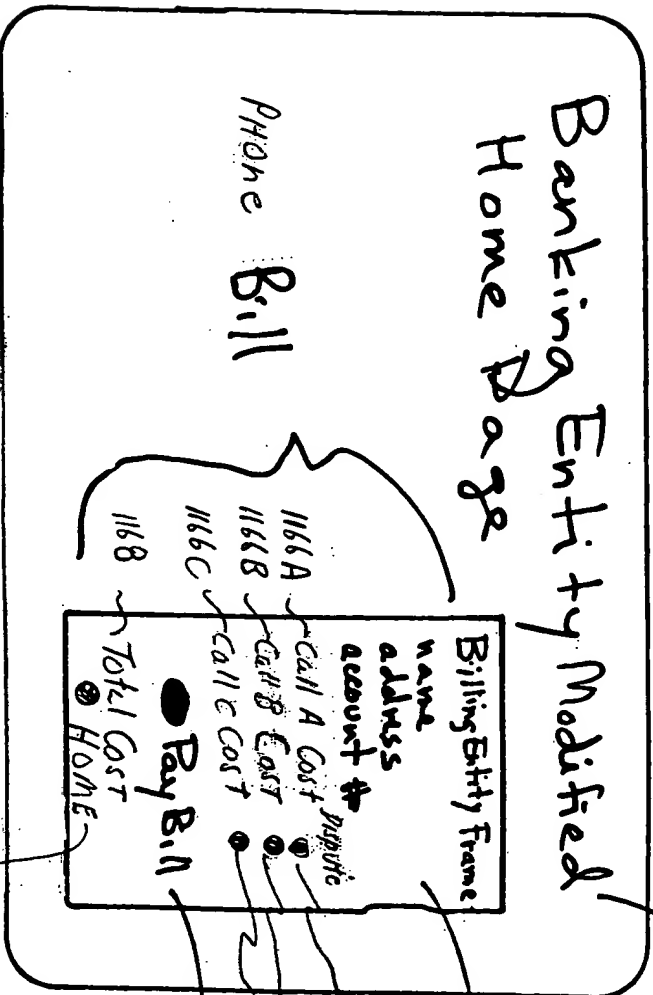 Banking Entity Modified
Home Page
Phone Bill
Billing Entity Frame
name
address
account #
Dispute
1166A Call A Cost
1166B Call B Cost
1166C Call C Cost
Pay Bill
1168 Total Cost
HOME